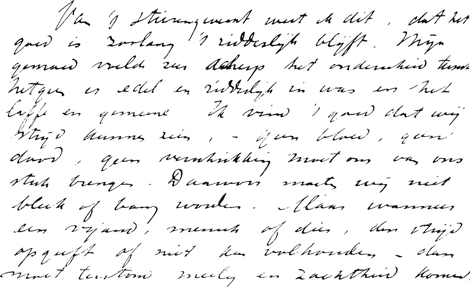 Van 't stierengevecht weet ik dit, dat het
goed is zoolang 't ridderlijk blijft. Mijn
gemoed voelde zeer scherp het onderscheid tussch
hetgeen es edel en ridderlijk in was en het
laffe en gemeene Ik vind 't goed dat wij
strijd kunnen zien, - geen bloed, geen
dood, geen verschrikking moet ons van ons
stuk brengen. Daarvoor moeten wij niet
bleek of bang worden. Maar wanneer
een vijand, mensch of dier, den strijd
opgeeft of niet kan volhouden - dan
moet terstond meelij en zachtheid komen.